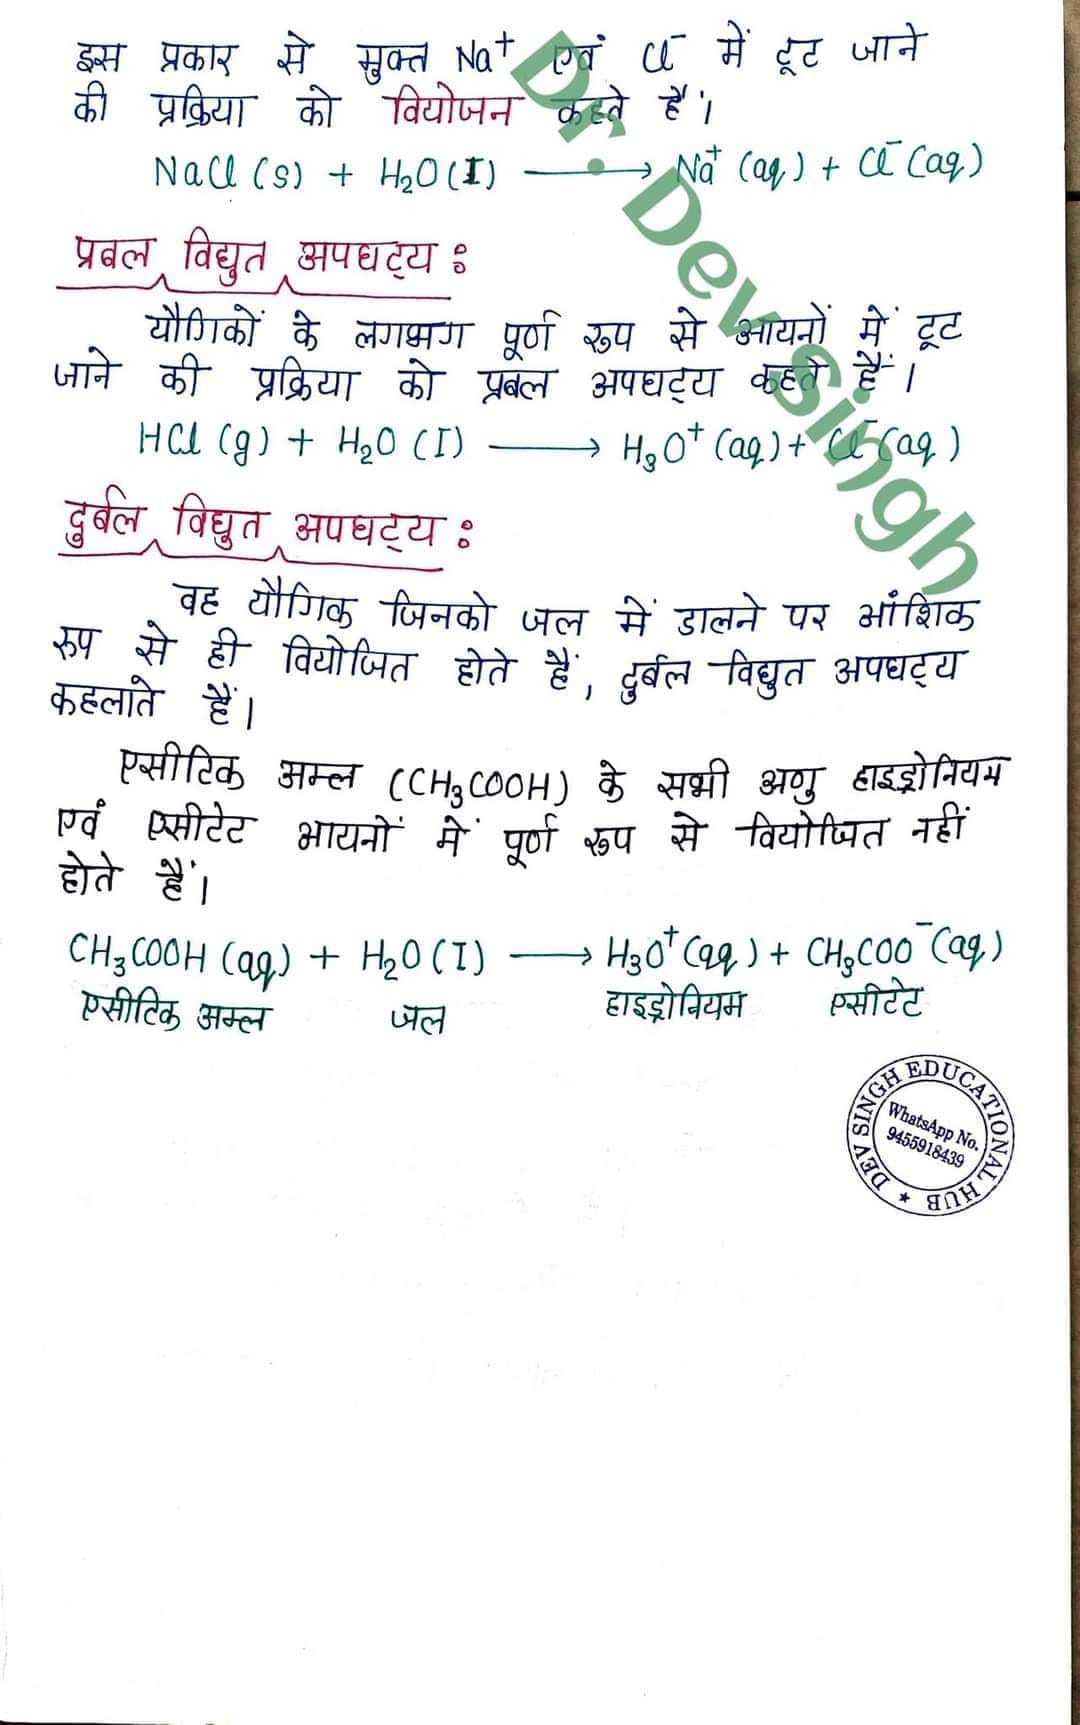 इस प्रकार से मुक्त Na⁺ एवं Cl⁻ में टूट जाने
की प्रक्रिया को वियोजन कहते हैं।
NaCl (s) + H₂O (I) ⟶ Na⁺ (aq) + Cl⁻ (aq)
प्रबल विद्युत अपघट्य :
यौगिकों के लगभग पूर्ण रूप से आयनों में टूट
जाने की प्रक्रिया को प्रबल अपघट्य कहते हैं।
HCl (g) + H₂O (I) ⟶ H₃O⁺ (aq) + Cl⁻ (aq)
दुर्बल विद्युत अपघट्य :
वह यौगिक जिनको जल में डालने पर आंशिक
रूप से ही वियोजित होते हैं, दुर्बल विद्युत अपघट्य
कहलाते हैं।
एसीटिक अम्ल (CH₃COOH) के सभी अणु हाइड्रोनियम
एवं एसीटेट आयनों में पूर्ण रूप से वियोजित नहीं
होते हैं।
CH₃COOH (aq) + H₂O (I) ⟶ H₃O⁺ (aq) + CH₃COO⁻ (aq)
एसीटिक अम्ल जल हाइड्रोनियम एसीटेट
Dr. Dev Singh
DEV SINGH EDUCATIONAL HUB
WhatsApp No.
9455918439